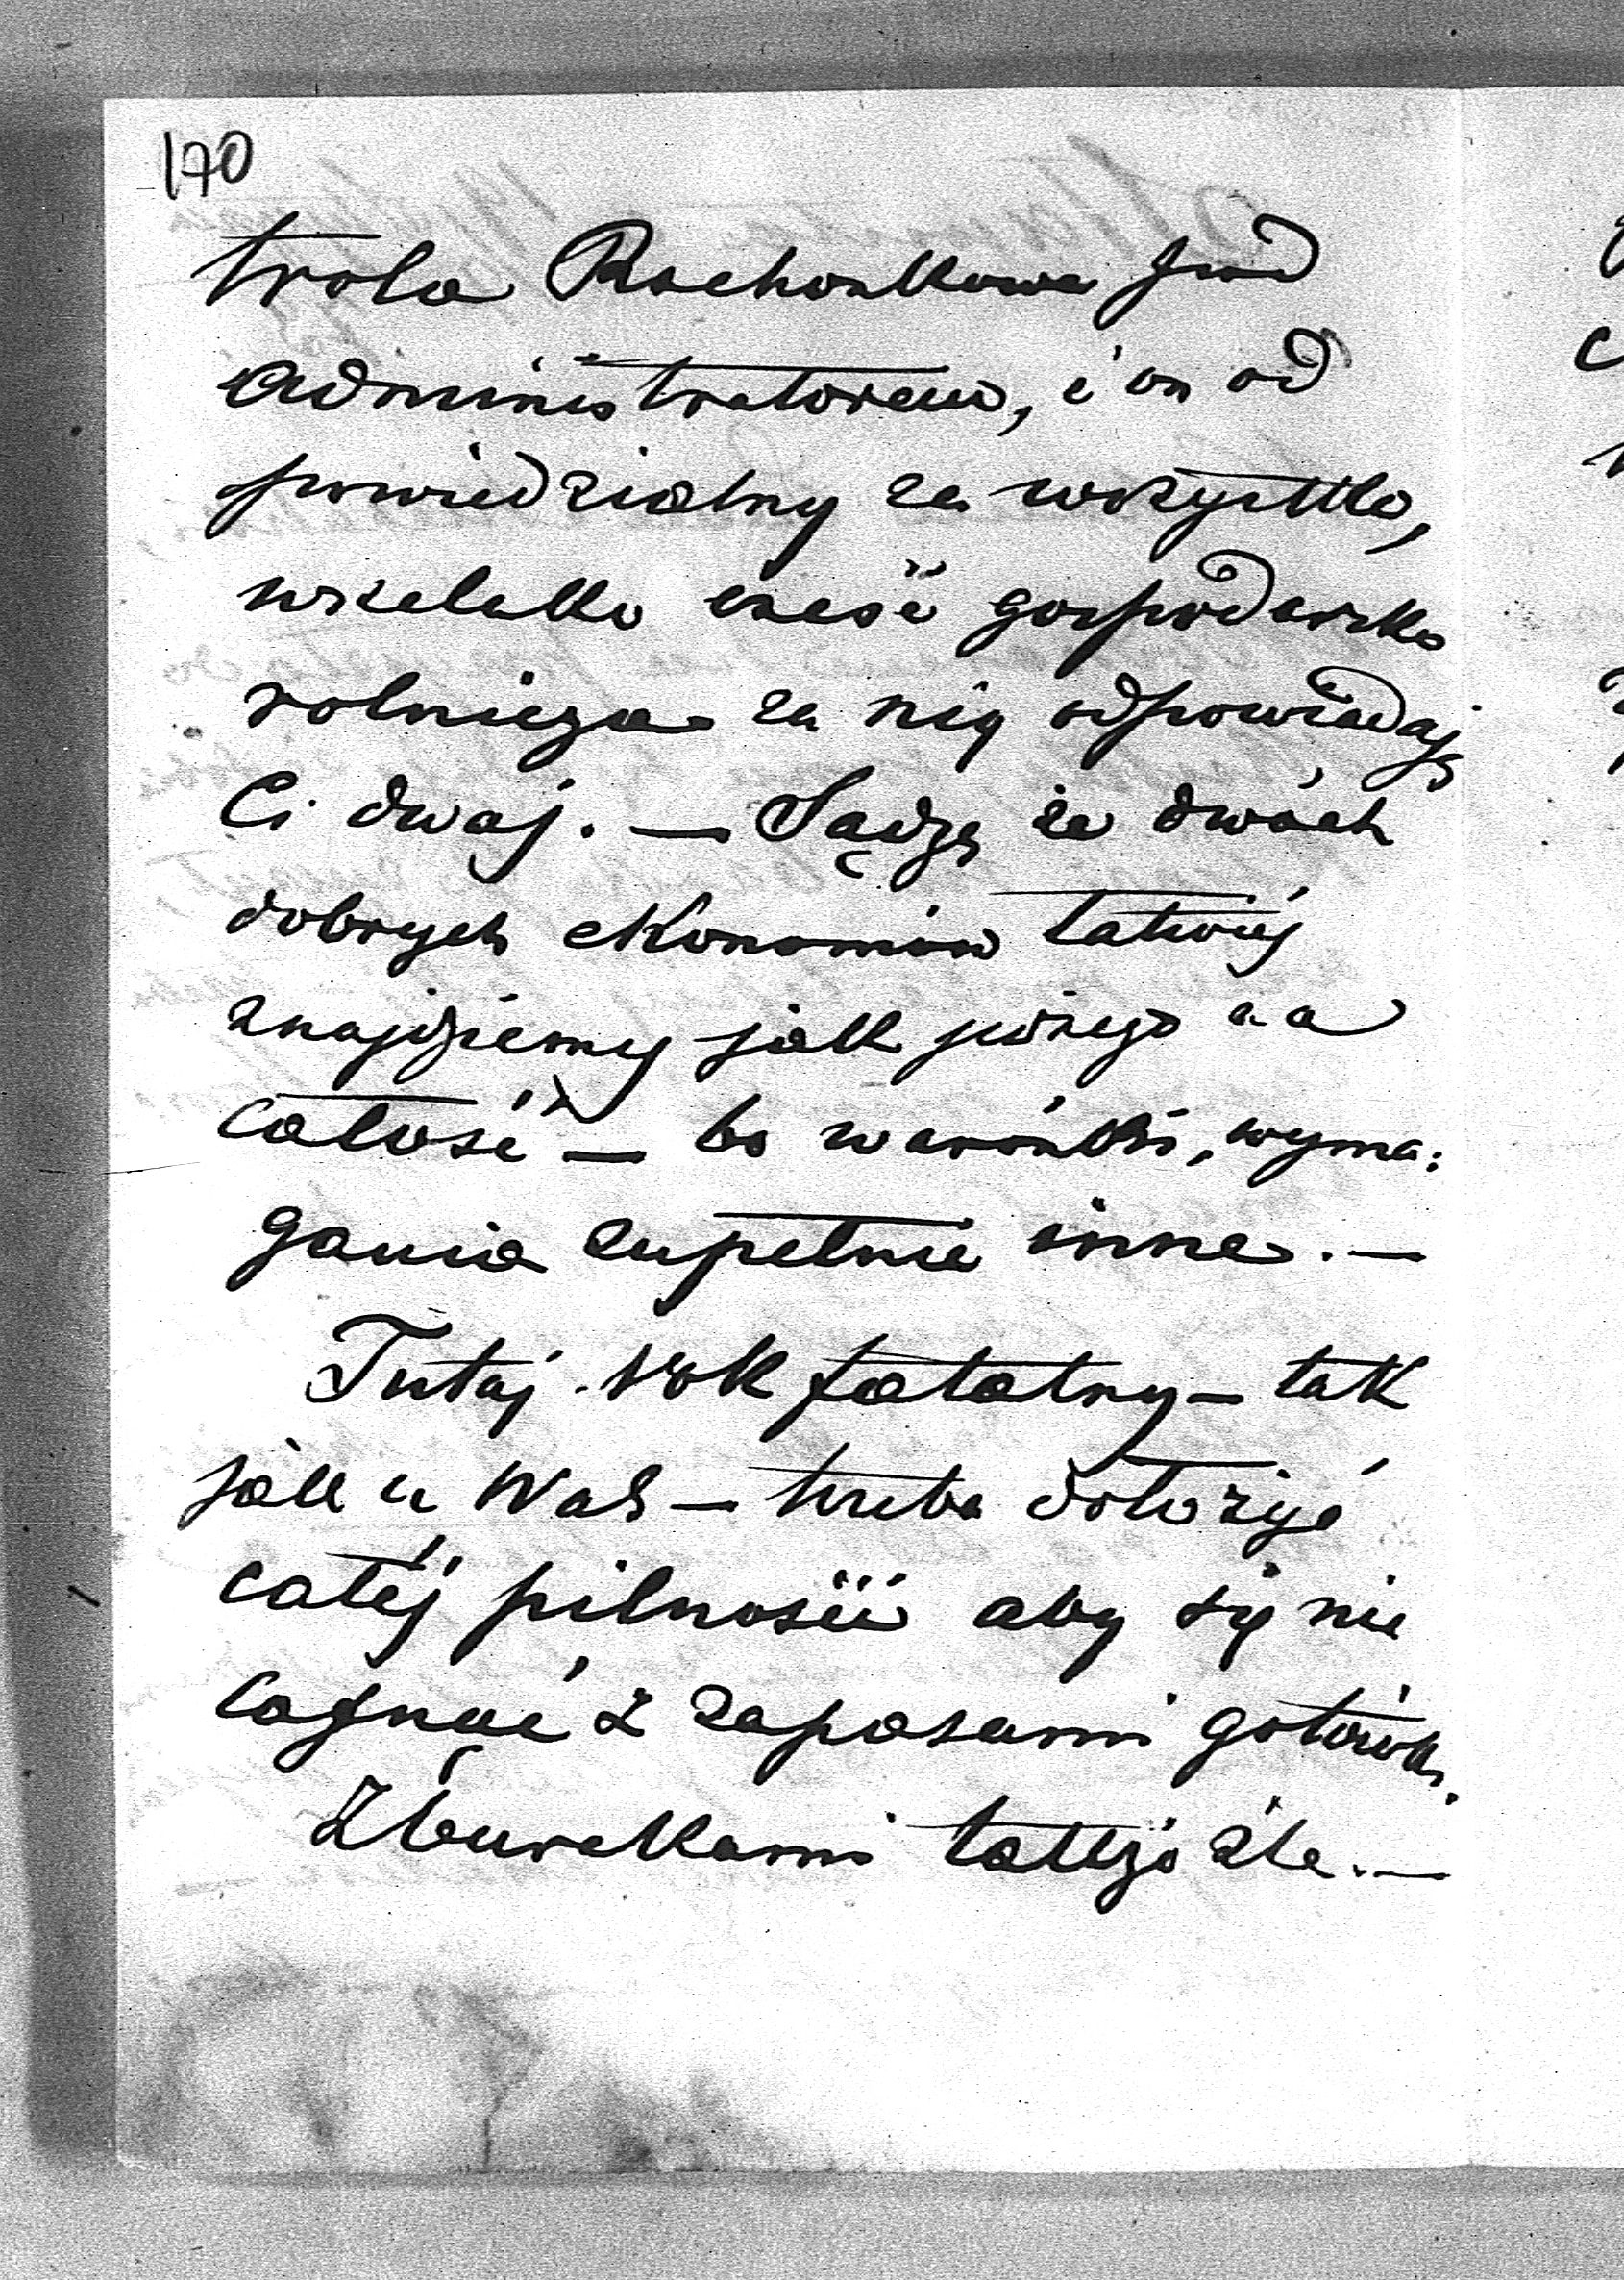 170
trola Rachonkowa pod
administratorem, i on od
powiedzialny za wszystko,
wszelako cześć gospodarsko
rolnicza za nią odpowiadają
Ci dwaj. — Sądzę że dwóch
dobrych ekonomów łatwiéj
znajdziemy jak jednego na
całość — bo warónki, wyma:
gania zupełnie inne. —
Tutaj rok fatalny — tak
jak u Was — trzeba dołożyć
całéj pilności aby się nie
cofnąć z zapasami gotówki.
Z burakami także źle. —